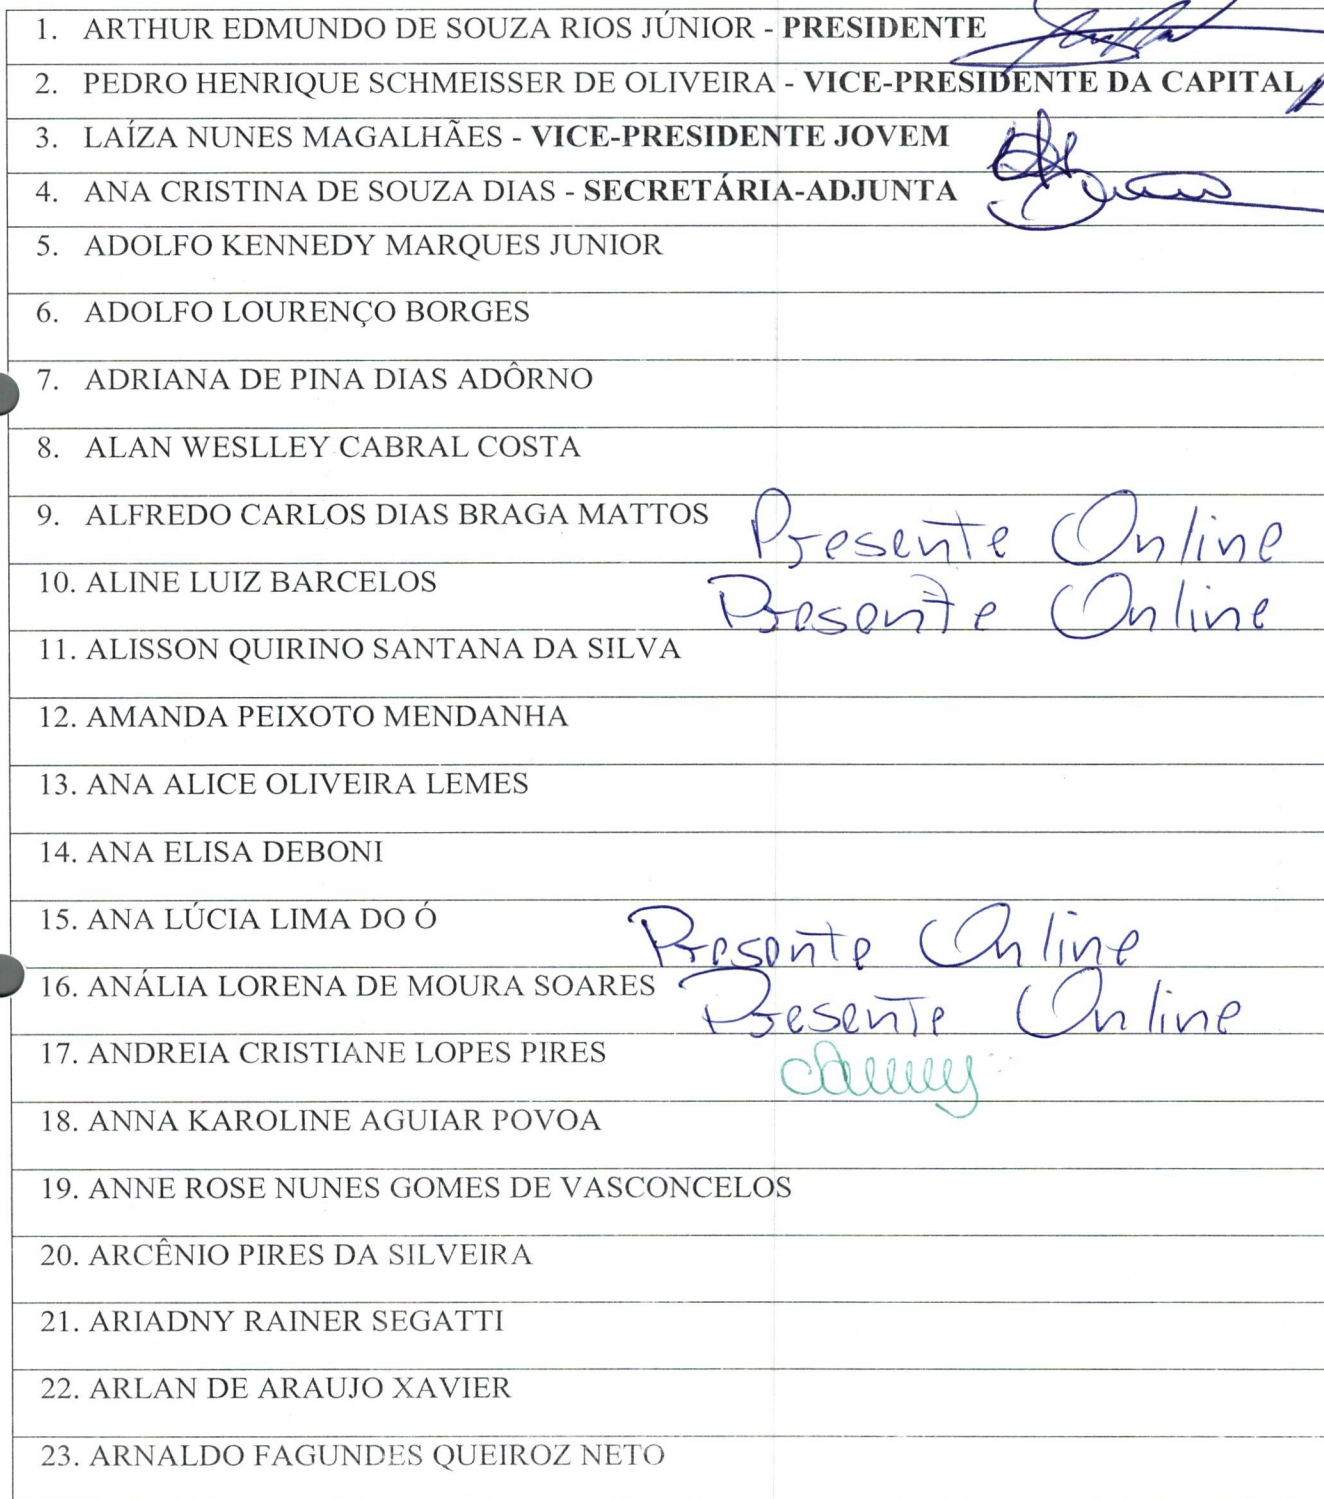 1. ARTHUR EDMUNDO DE SOUZA RIOS JÚNIOR - PRESIDENTE
2. PEDRO HENRIQUE SCHMEISSER DE OLIVEIRA - VICE-PRESIDENTE DA CAPITAL
3. LAÍZA NUNES MAGALHÃES - VICE-PRESIDENTE JOVEM
4. ANA CRISTINA DE SOUZA DIAS - SECRETÁRIA-ADJUNTA
5. ADOLFO KENNEDY MARQUES JUNIOR
6. ADOLFO LOURENÇO BORGES
7. ADRIANA DE PINA DIAS ADÔRNO
8. ALAN WESLLEY CABRAL COSTA
9. ALFREDO CARLOS DIAS BRAGA MATTOS Presente Online
10. ALINE LUIZ BARCELOS Presente Online
11. ALISSON QUIRINO SANTANA DA SILVA
12. AMANDA PEIXOTO MENDANHA
13. ANA ALICE OLIVEIRA LEMES
14. ANA ELISA DEBONI
15. ANA LÚCIA LIMA DO Ó Presente Online
16. ANÁLIA LORENA DE MOURA SOARES Presente Online
17. ANDREIA CRISTIANE LOPES PIRES
18. ANNA KAROLINE AGUIAR POVOA
19. ANNE ROSE NUNES GOMES DE VASCONCELOS
20. ARCÊNIO PIRES DA SILVEIRA
21. ARIADNY RAINER SEGATTI
22. ARLAN DE ARAUJO XAVIER
23. ARNALDO FAGUNDES QUEIROZ NETO